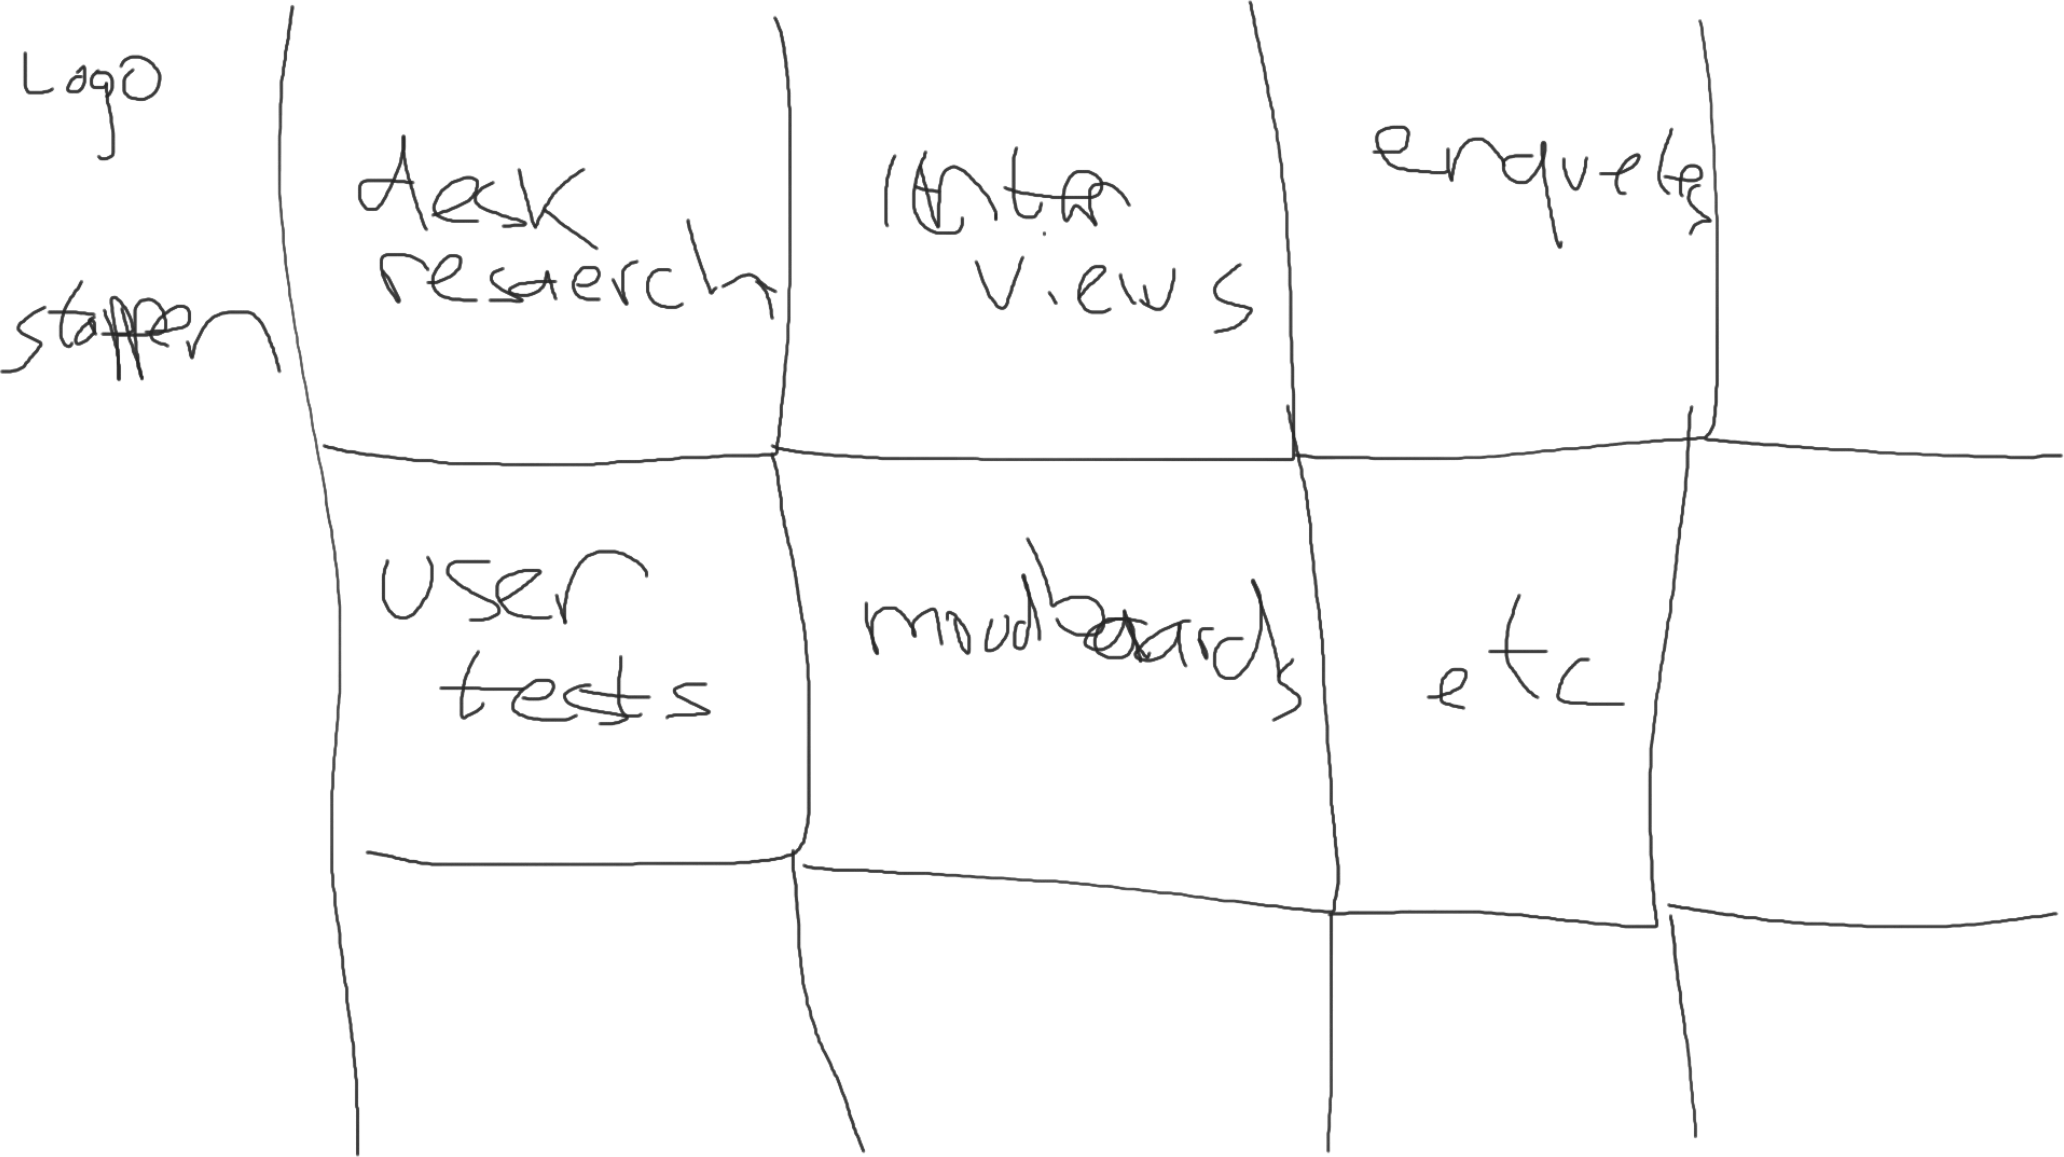 Logo
stappen
desk
reserch
inter
views
enquetes
user
tests
moodboards
etc